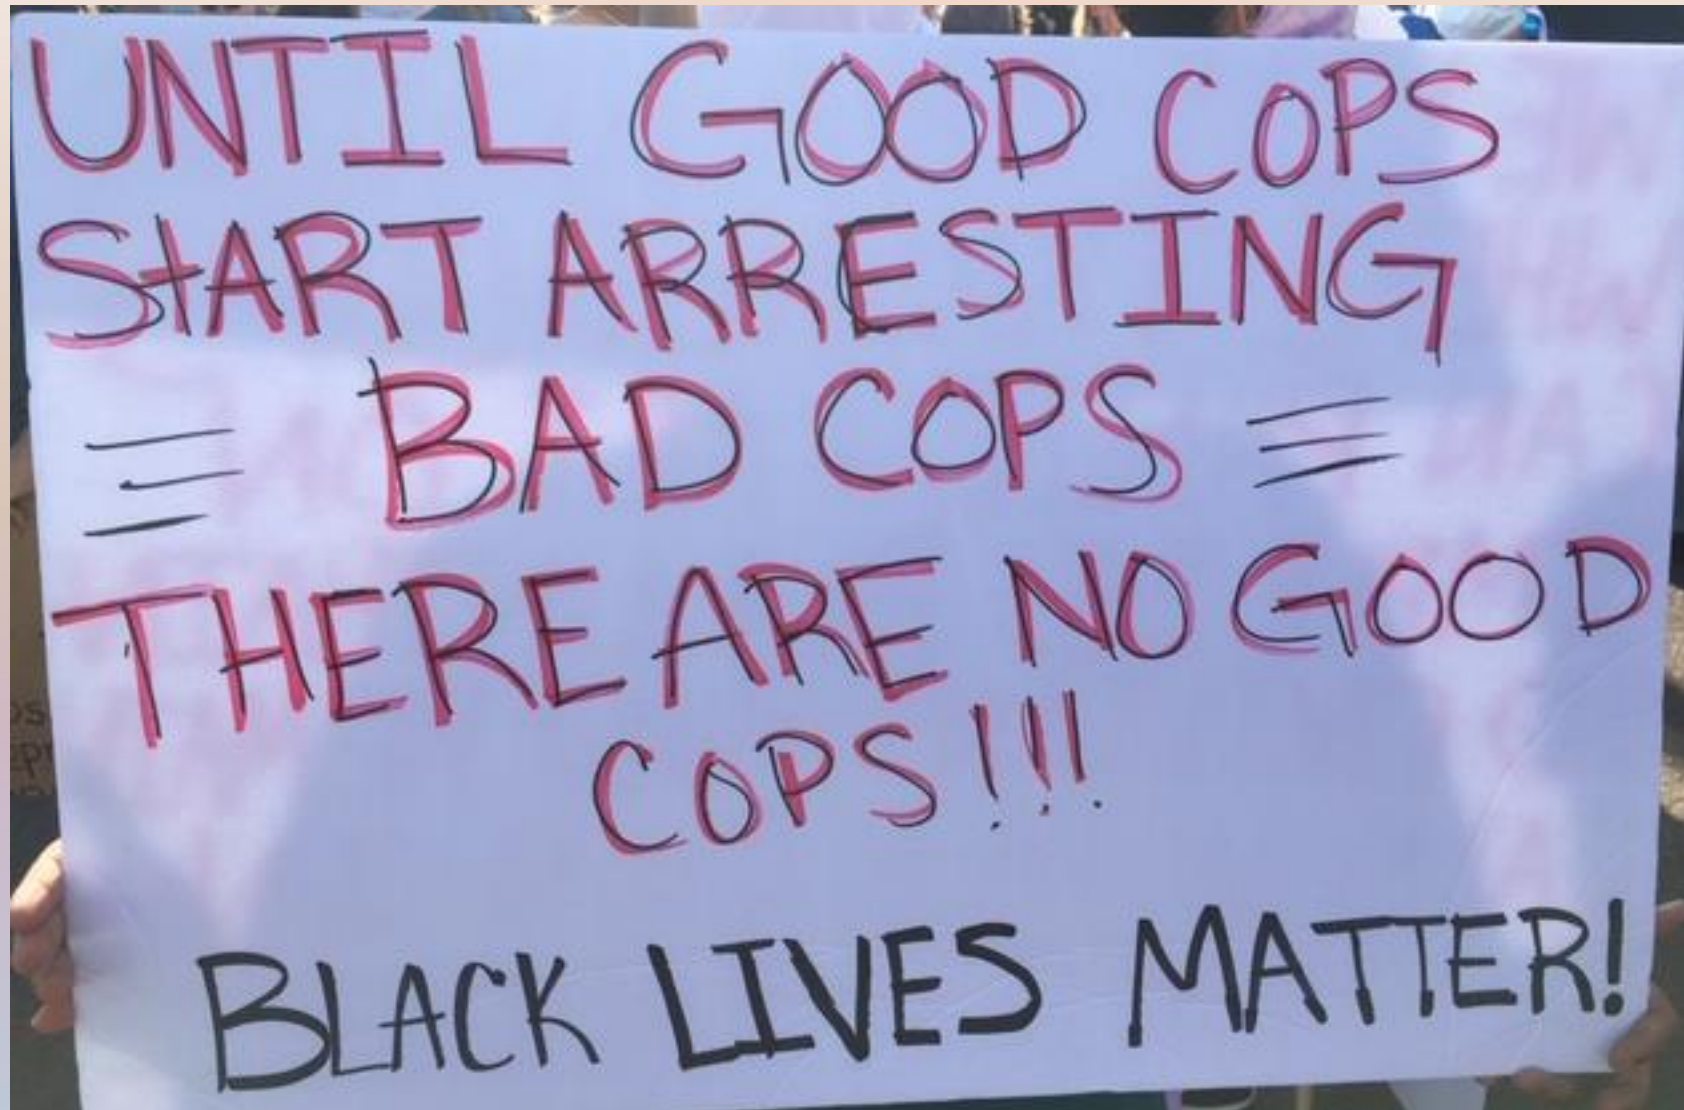 UNTIL GOOD COPS
START ARRESTING
BAD COPS
THERE ARE NO GOOD
COPS!!!
BLACK LIVES MATTER!